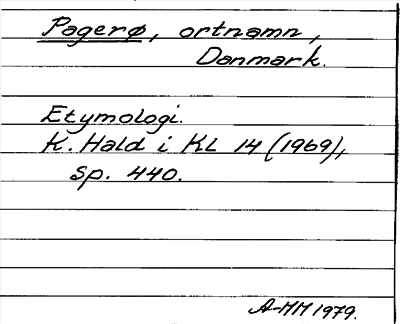 Pagerø, ortnamn,
Danmark.
Etymologi.
K. Hald i KL 14 (1969),
sp. 440.
A-MM 1979.